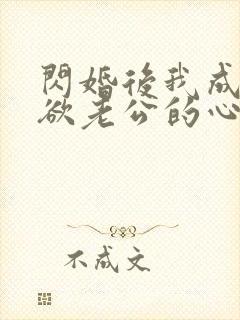 閃婚後我成
欲老公的心
不成文